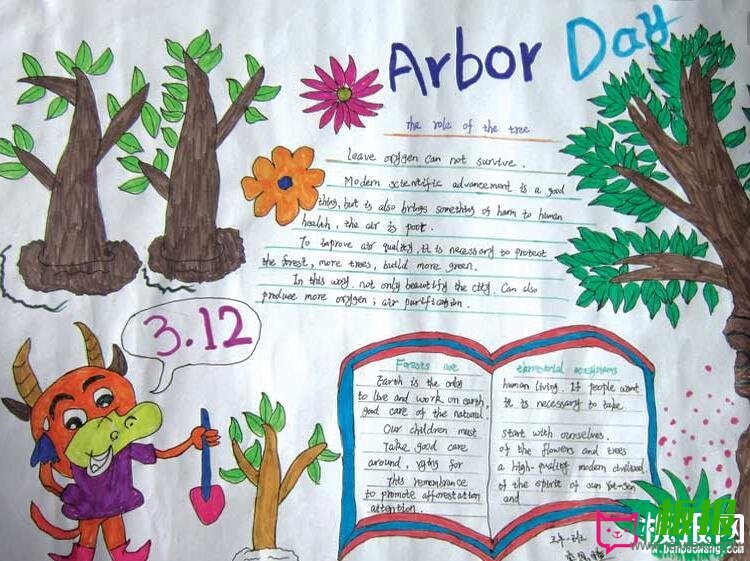 Arbor Day
The role of the tree
Leave oxygen can not survive.
Modern scientific advancement is a good
thing, but is also brings something of harm to human
health, the air is poor.
To improve air quality, it is necessary to protect
the forest, more trees, build more green.
In this way, not only beautify the city. Can also
produce more oxygen; air purification.
3.12
Forests are
Earth is the only
to live and work on earth,
good care of the natural.
Our children must
Take good care
around, vying for
This remembrance
to promote afforestation
attention.
terrestrial ecosystems
human living. If people want
It is necessary to take
start with ourselves.
of the flowers and trees
a high-quality modern
of the spirit of sun Yat-sen
and
板报网
www.banbaowang.com